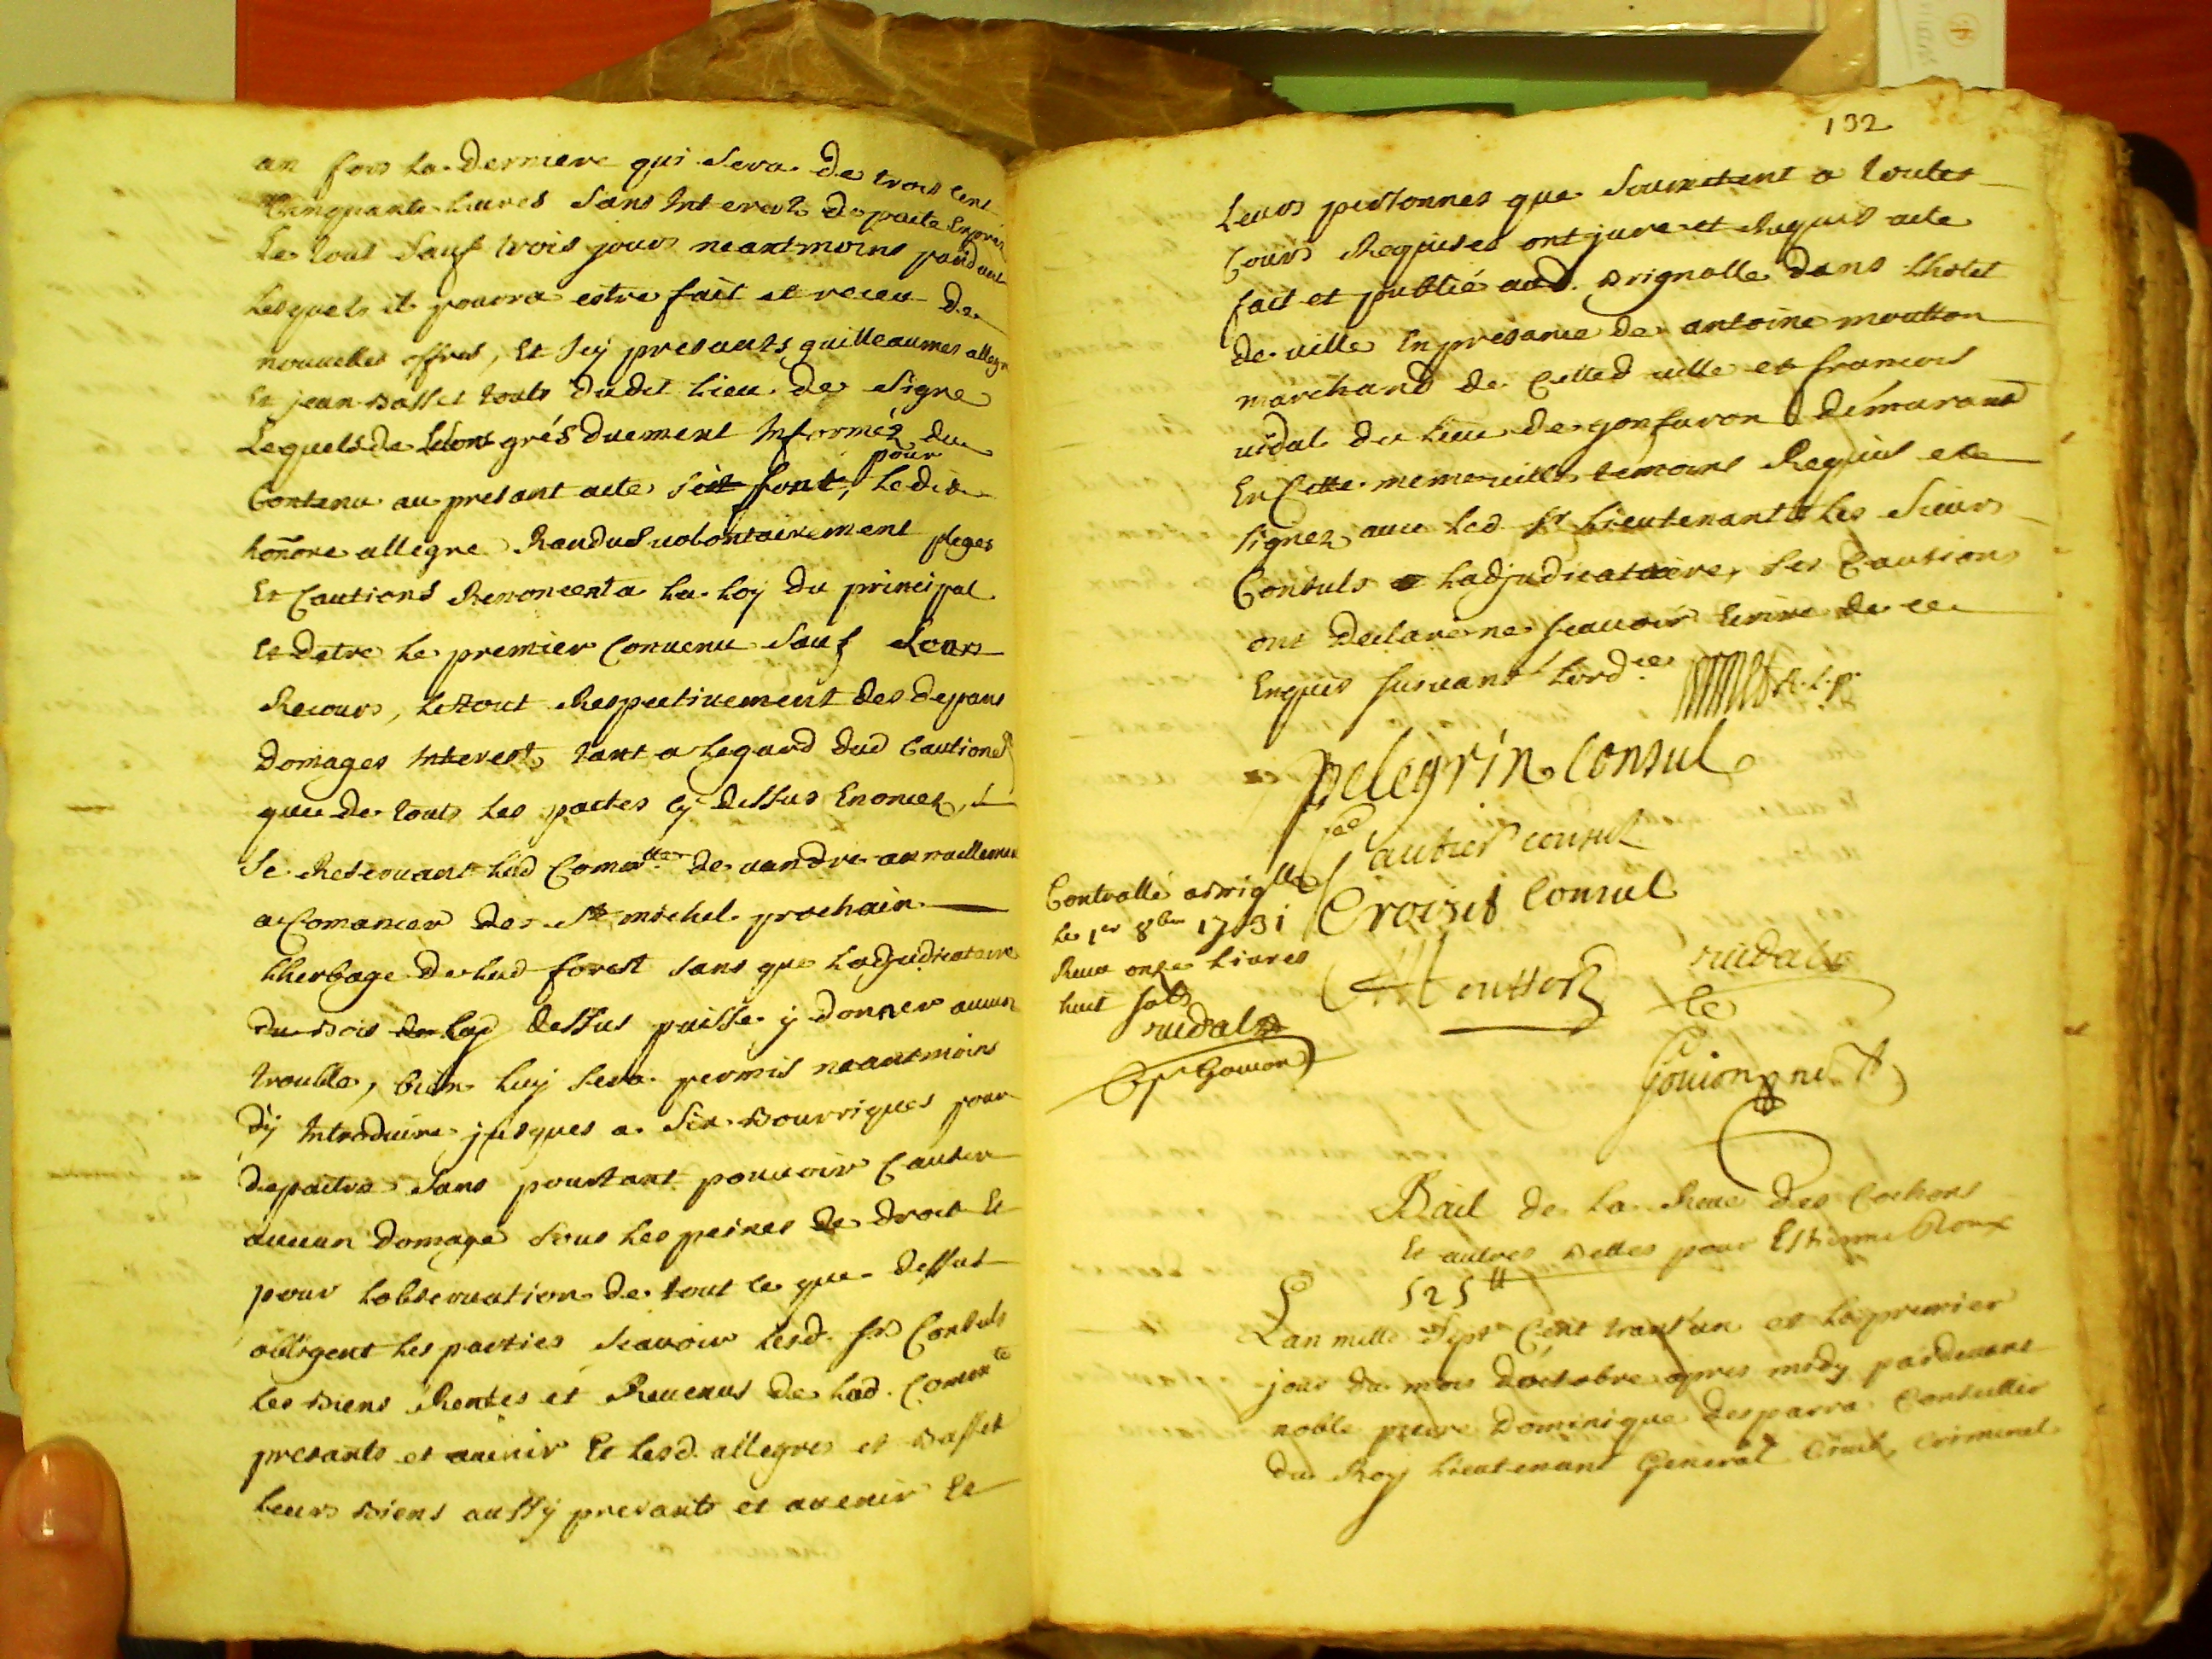 an fors la derniere qui sera de trois cent
Cinquante livres sans Interest de pacte Expres
Le tout sauf trois jours neantmoins pandant
lesquels il pourra estre fait et receu de
nouvelles offres, Et Icy presants guilleaumes allegre
Et jean Basset touts dudit lieu de Signe
Lequels de leur gres duement Informéz du
pour
Contenu au presant acte font, Ledit
honnore allegre Randus volontairement pleges
Et Cautions Renoncent a la loy du principal
Et detre le premier Convenu Sauf Leurs
Recours, le tout Respectivement des depans
Domages Interest, tant a legard dud Cautionet
que de touts les pactes cy dessus Enoncez,
Se Reservant lad Comte de vandre annuellement
a Comancer des St michel prochain
Lherbage de lad forest sans que Ladjudicataire
du Bois cy dessus puisse y donner aucun
trouble, bien luy sera permis neantmoins
dy Introduire jusques a Six Bourriques pour
depaitre Sans pourtant pouvoir Causer
aucun Domage Sous les peines de droit Et
pour Lobservation de tout ce que dessus
obligent les parties Scavoir lesd. srs Consuls
les Biens Rentes et Revenus de lad. Comte
presants et avenir Et lesd. allegres et Basset
leurs Biens aussy presants et avenir Et
132
Leurs personnes que Soumetent a toutes
Cours Requises ont juré et Requis acte
fait et publié aud. Brignolle dans lhotel
de ville En presance de antoine moutton
marchand de Cetted ville et francois
vidal du lieu de gonfaron démurant
En Cette meme ville temoins Requis et
signez avec led sr Lieutenant Les Sieurs
Consuls Ladjudicataire, Ses Cautions
ont declaré ne scavoir Ecrire de ce
Enquis suivant Lordce
R.l.p.
pelegrin Consul
autier consul
Croiset Consul
Contrallé a Briglle
le 1er 8bre 1731
Receu onze livres
huit sols
vidal
Moutton
vidal
Gouion
Gouion
Bail de la Reve des Cochons
Et autres Betes pour Estienne Roux
525 ll
Lan mille Sept Cent trant'un et le premier
jour du mois d'octobre apres midy pardevant
noble pierre Dominique desparra Conseiller
du Roy Lieutenant General Civil Criminel